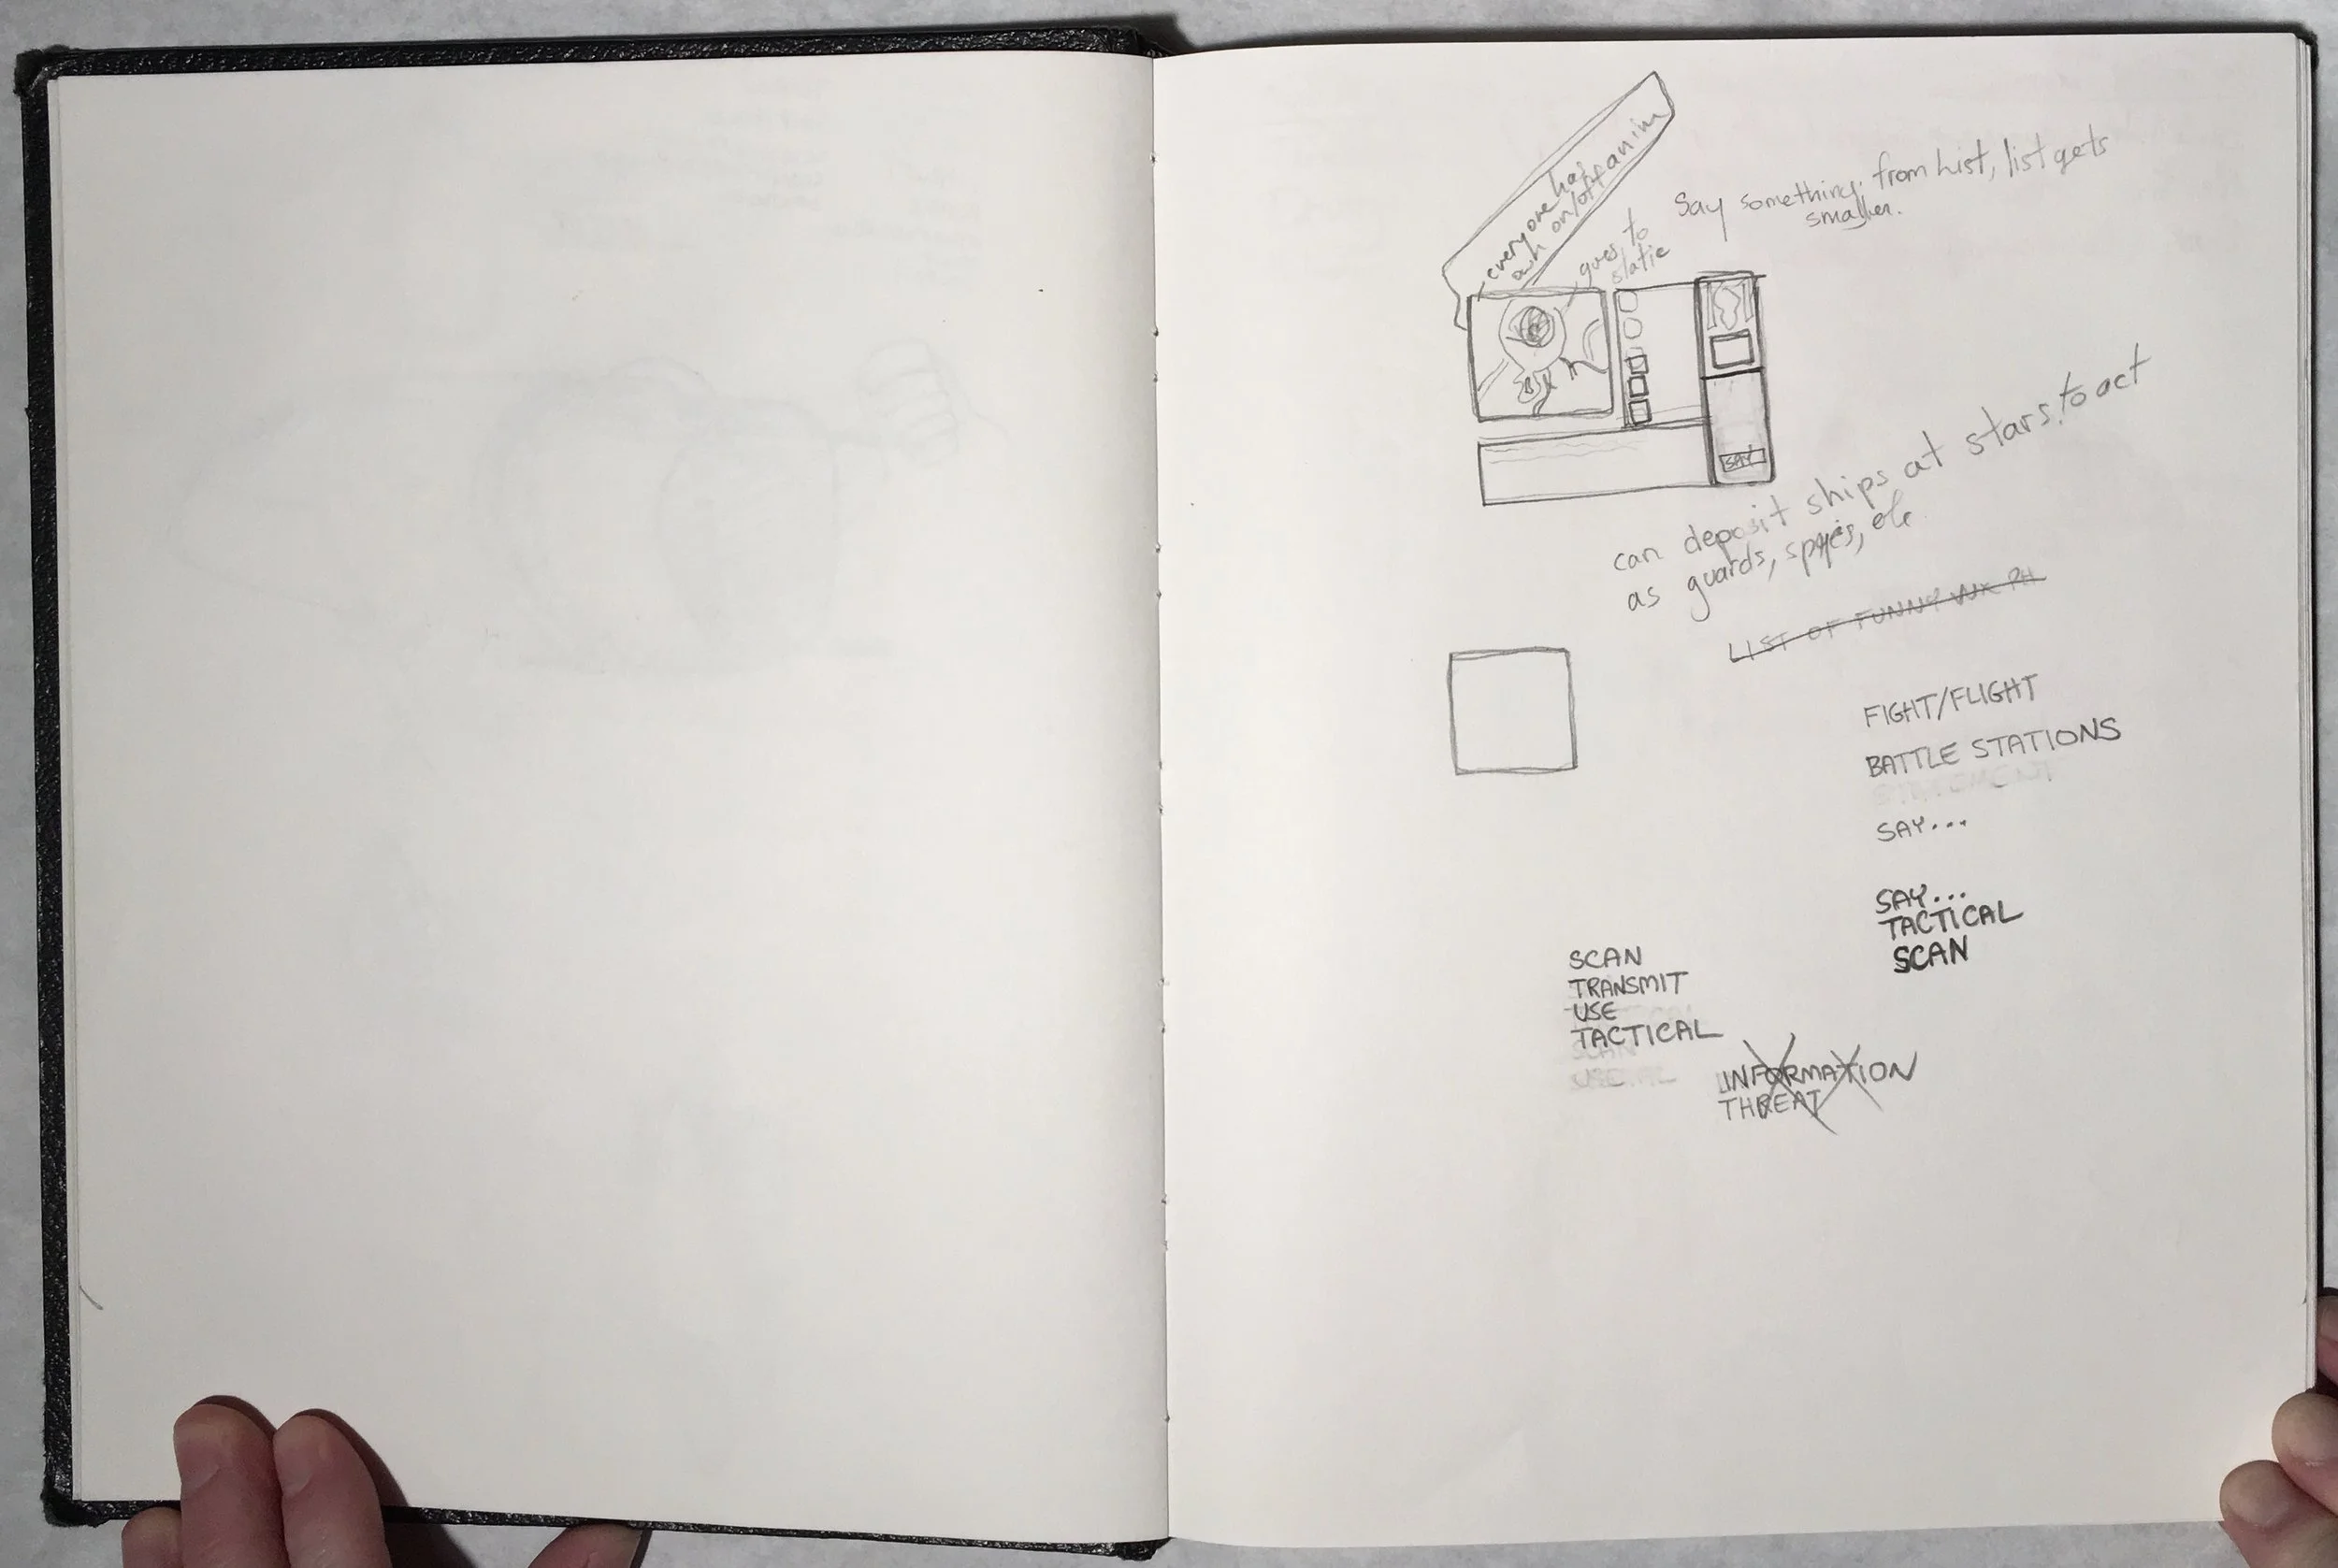 everyone has
own on/off anim
goes to
static
Say something: from list, list gets
smaller.
SAY
can deposit ships at stars to act
as guards, spies, etc
LIST OF FUNNY
FIGHT/FLIGHT
BATTLE STATIONS
SAY...
SAY...
TACTICAL
SCAN
SCAN
TRANSMIT
USE
TACTICAL
SCAN
USE
INFORMATION
THREAT